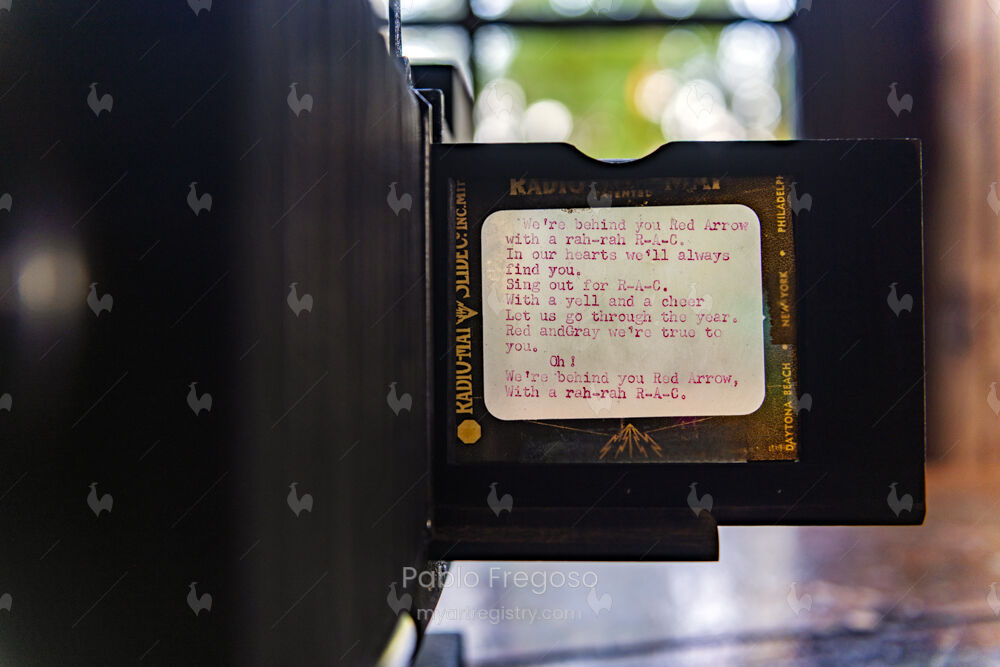 RADIO-MAT
PATENTED
RADIO-MAT SLIDE C. INC. MIT
PHILADELPH
NEW YORK
DAYTONA BEACH
"We're behind you Red Arrow
with a rah-rah R-A-C.
In our hearts we'll always
find you.
Sing out for R-A-C.
With a yell and a cheer
Let us go through the year.
Red andGray we're true to
you.
Oh!
We're behind you Red Arrow,
With a rah-rah R-A-C.
Pablo Fregoso
myartregistry.com